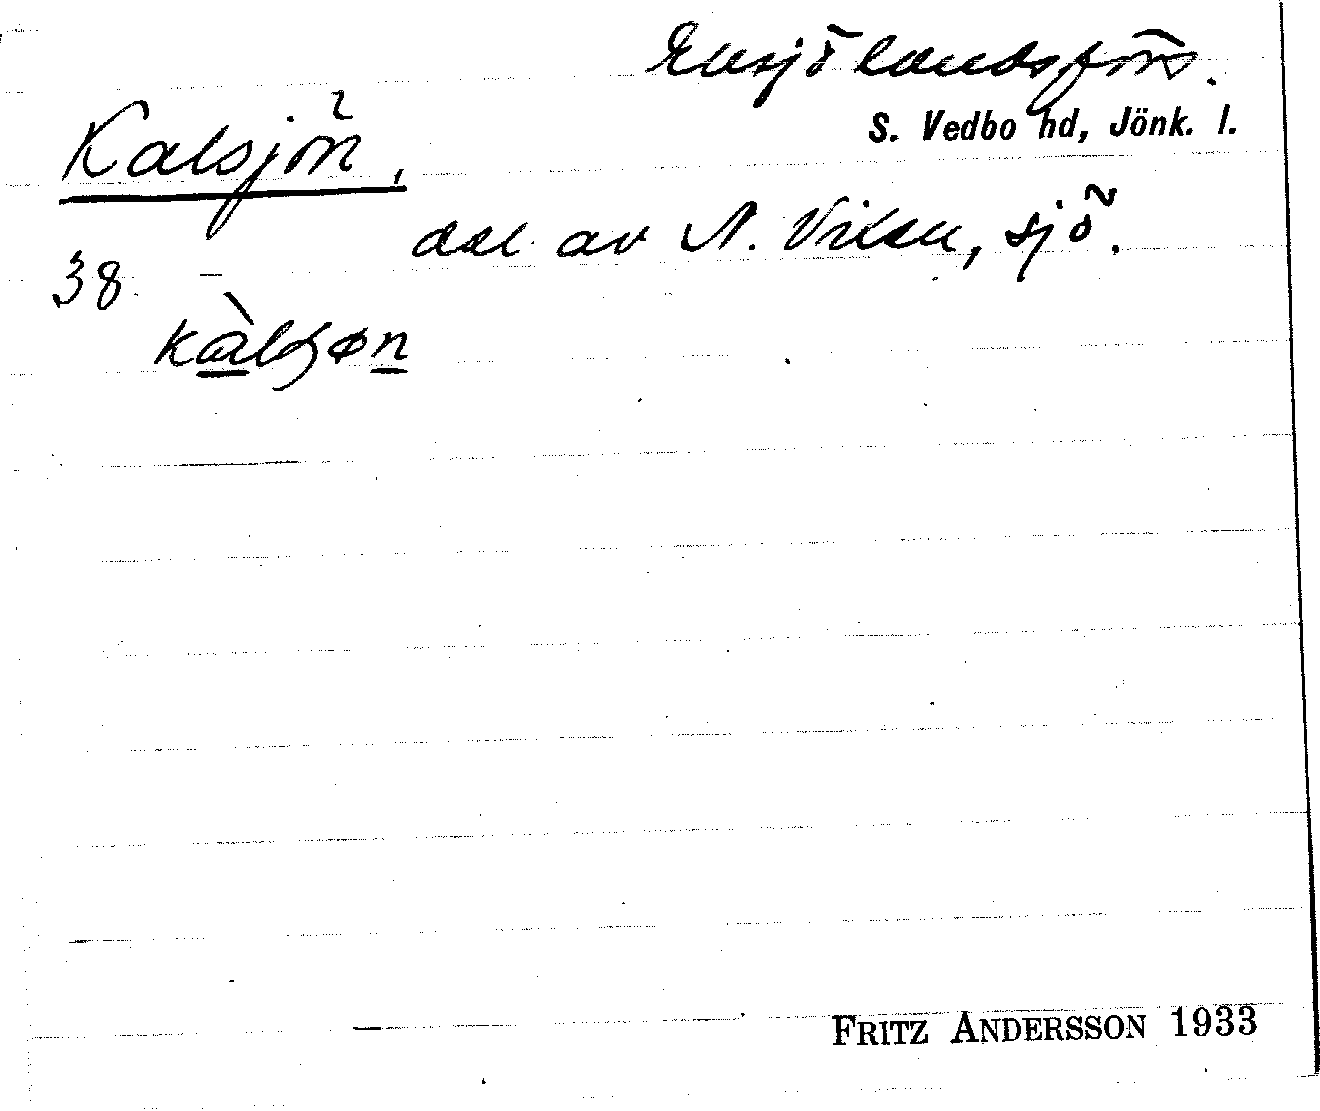 Eksjö landsförs.
S. Vedbo hd, Jönk. l.
Kalsjön,
del av N. Vixen, sjö.
38
FRITZ ANDERSSON 1933